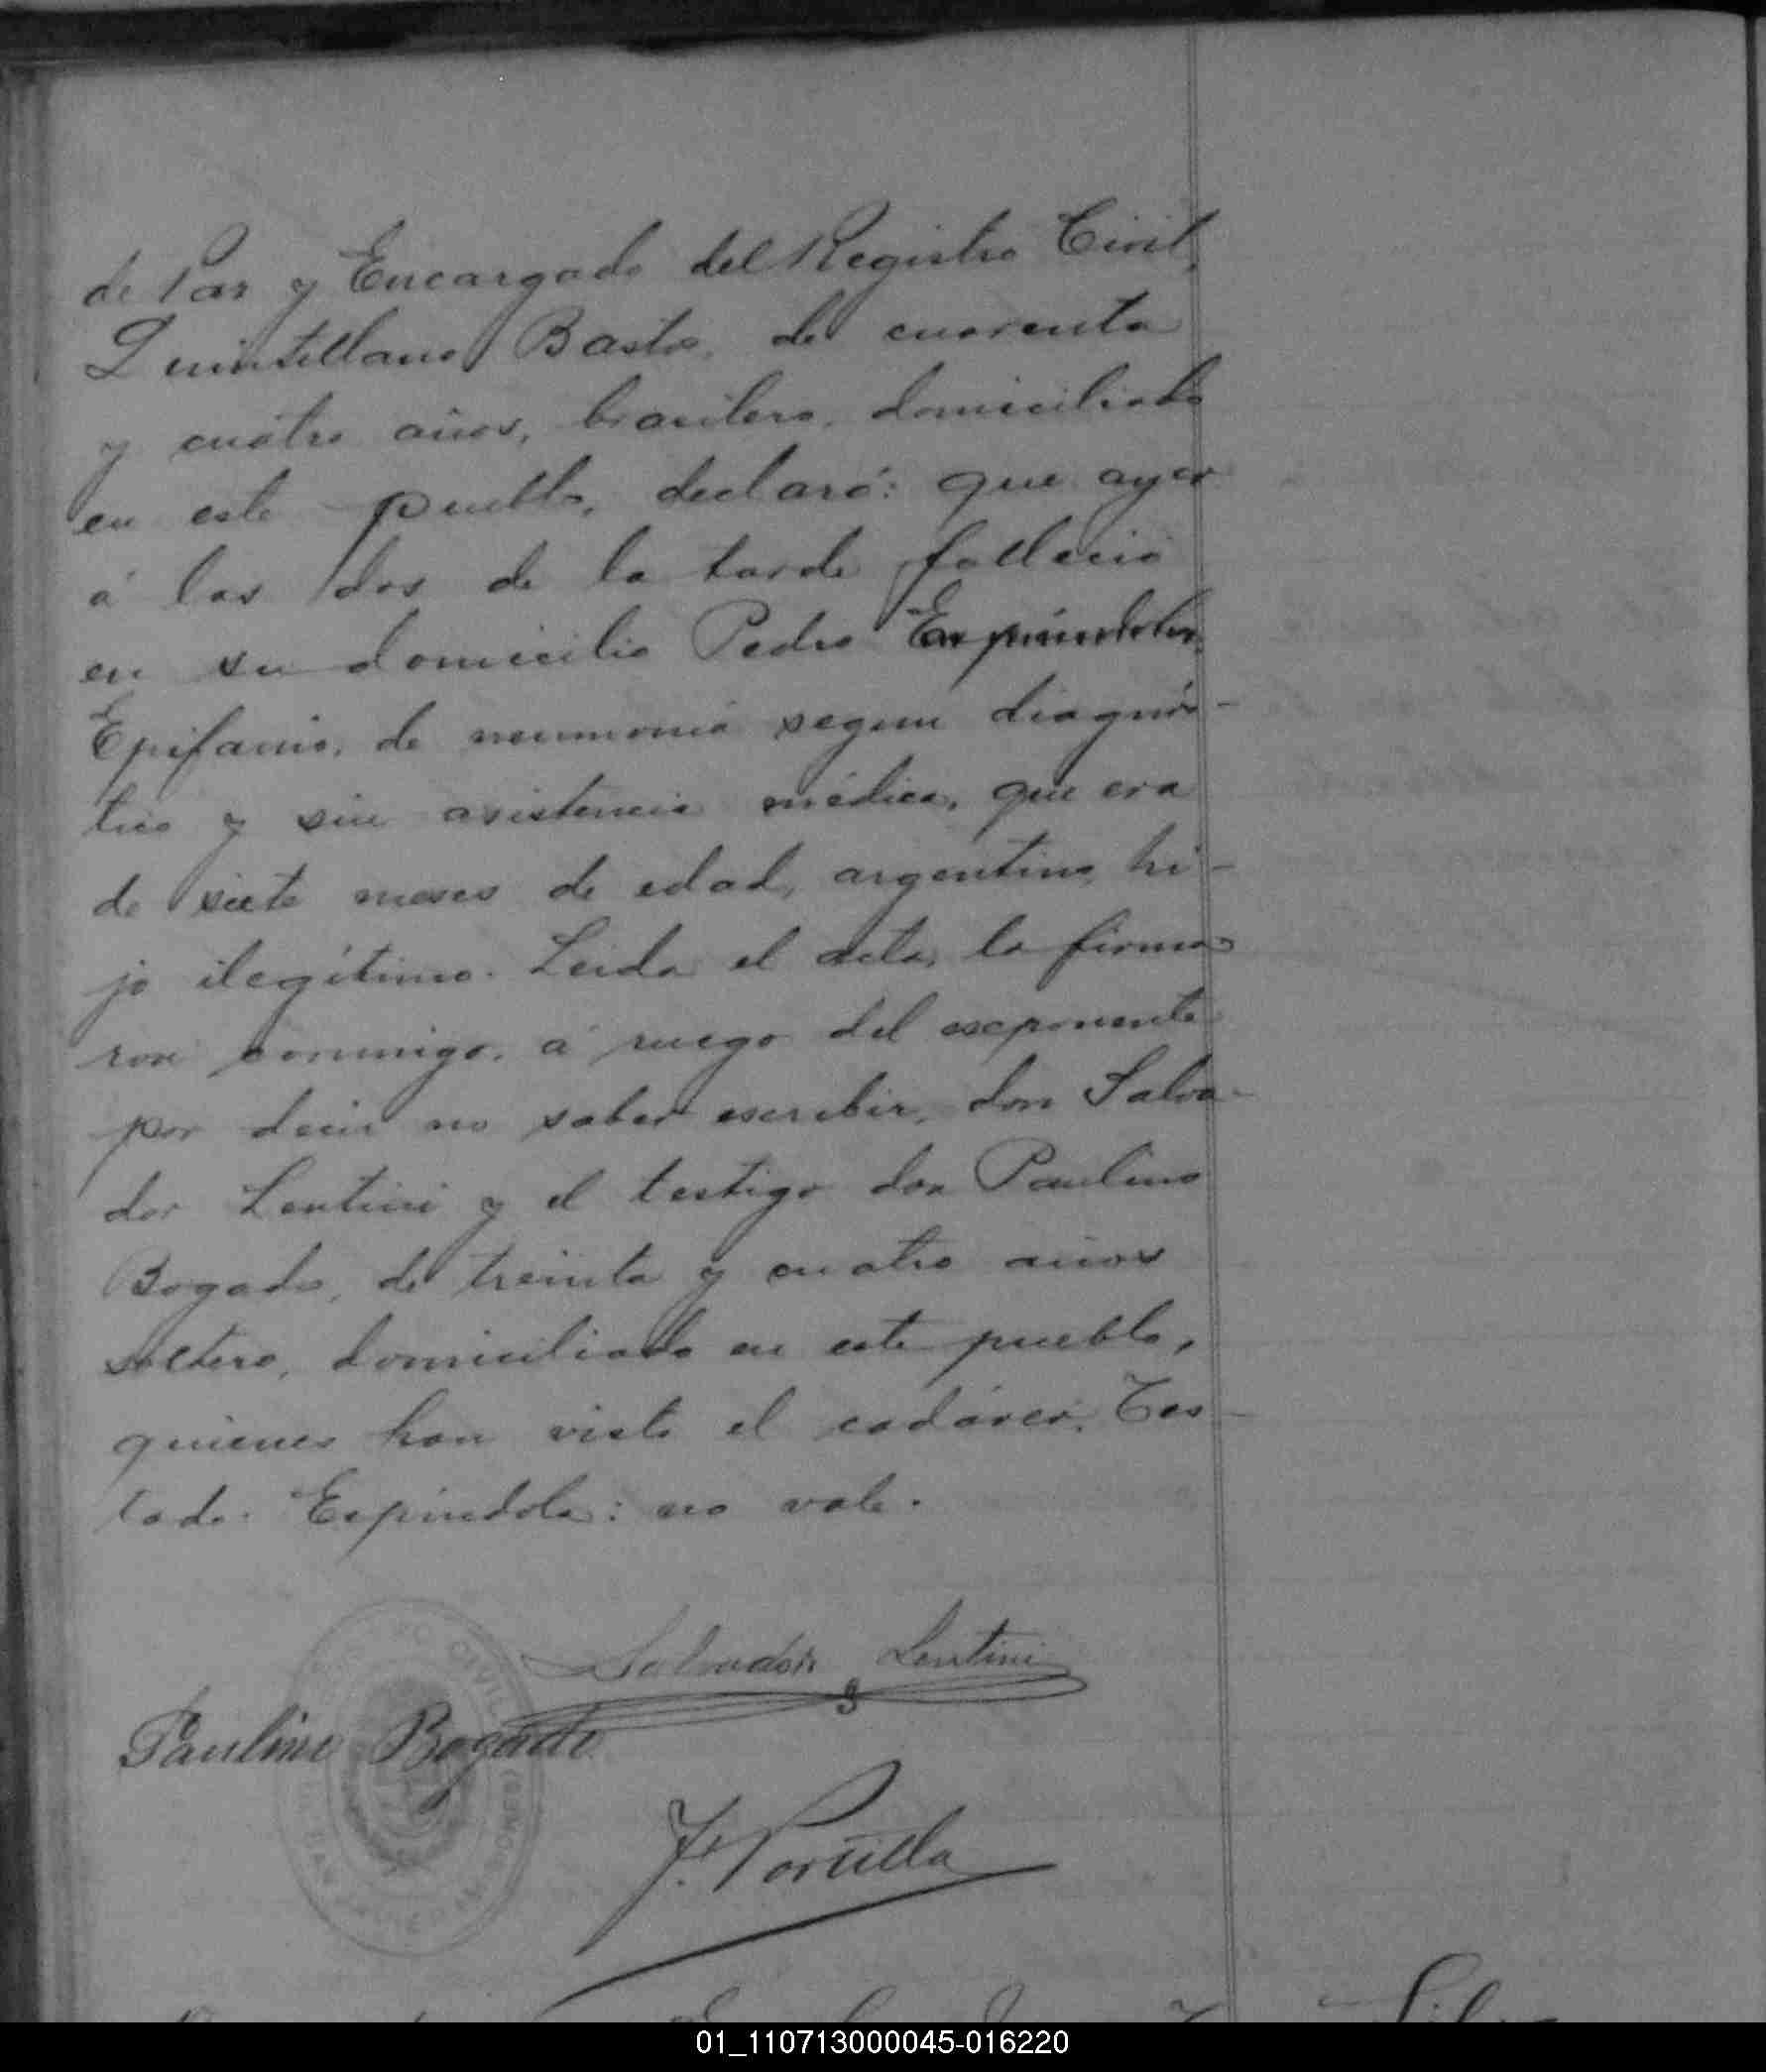 de Paz y Encargado del Registro Civil,
Quintillano Basto, de cuarenta
y cuatro años, brasilero, domiciliado
en este pueblo, declaró: que ayer
á las dos de la tarde falleció
en su domicilio Pedro Espíndola,
Epifanio, de neumonia segun diagnós-
tico y sin asistencia médica, que era
de siete meses de edad, argentino, hi-
jo ilegítimo. Leida el acta, la firma-
ron conmigo, á ruego del exponente
por decir no saber escribir, don Salva-
dor Lentini y el testigo don Paulino
Bogado, de treinta y cuatro años
soltero, domiciliado en este pueblo,
quienes han visto el cadáver. Tes-
tado: Espíndola: no vale.
Salvador Lentini
Paulino Bogado
CIVIL
(MISIONES)
SAN JAVIER
J. Portilla
01_110713000045-016220